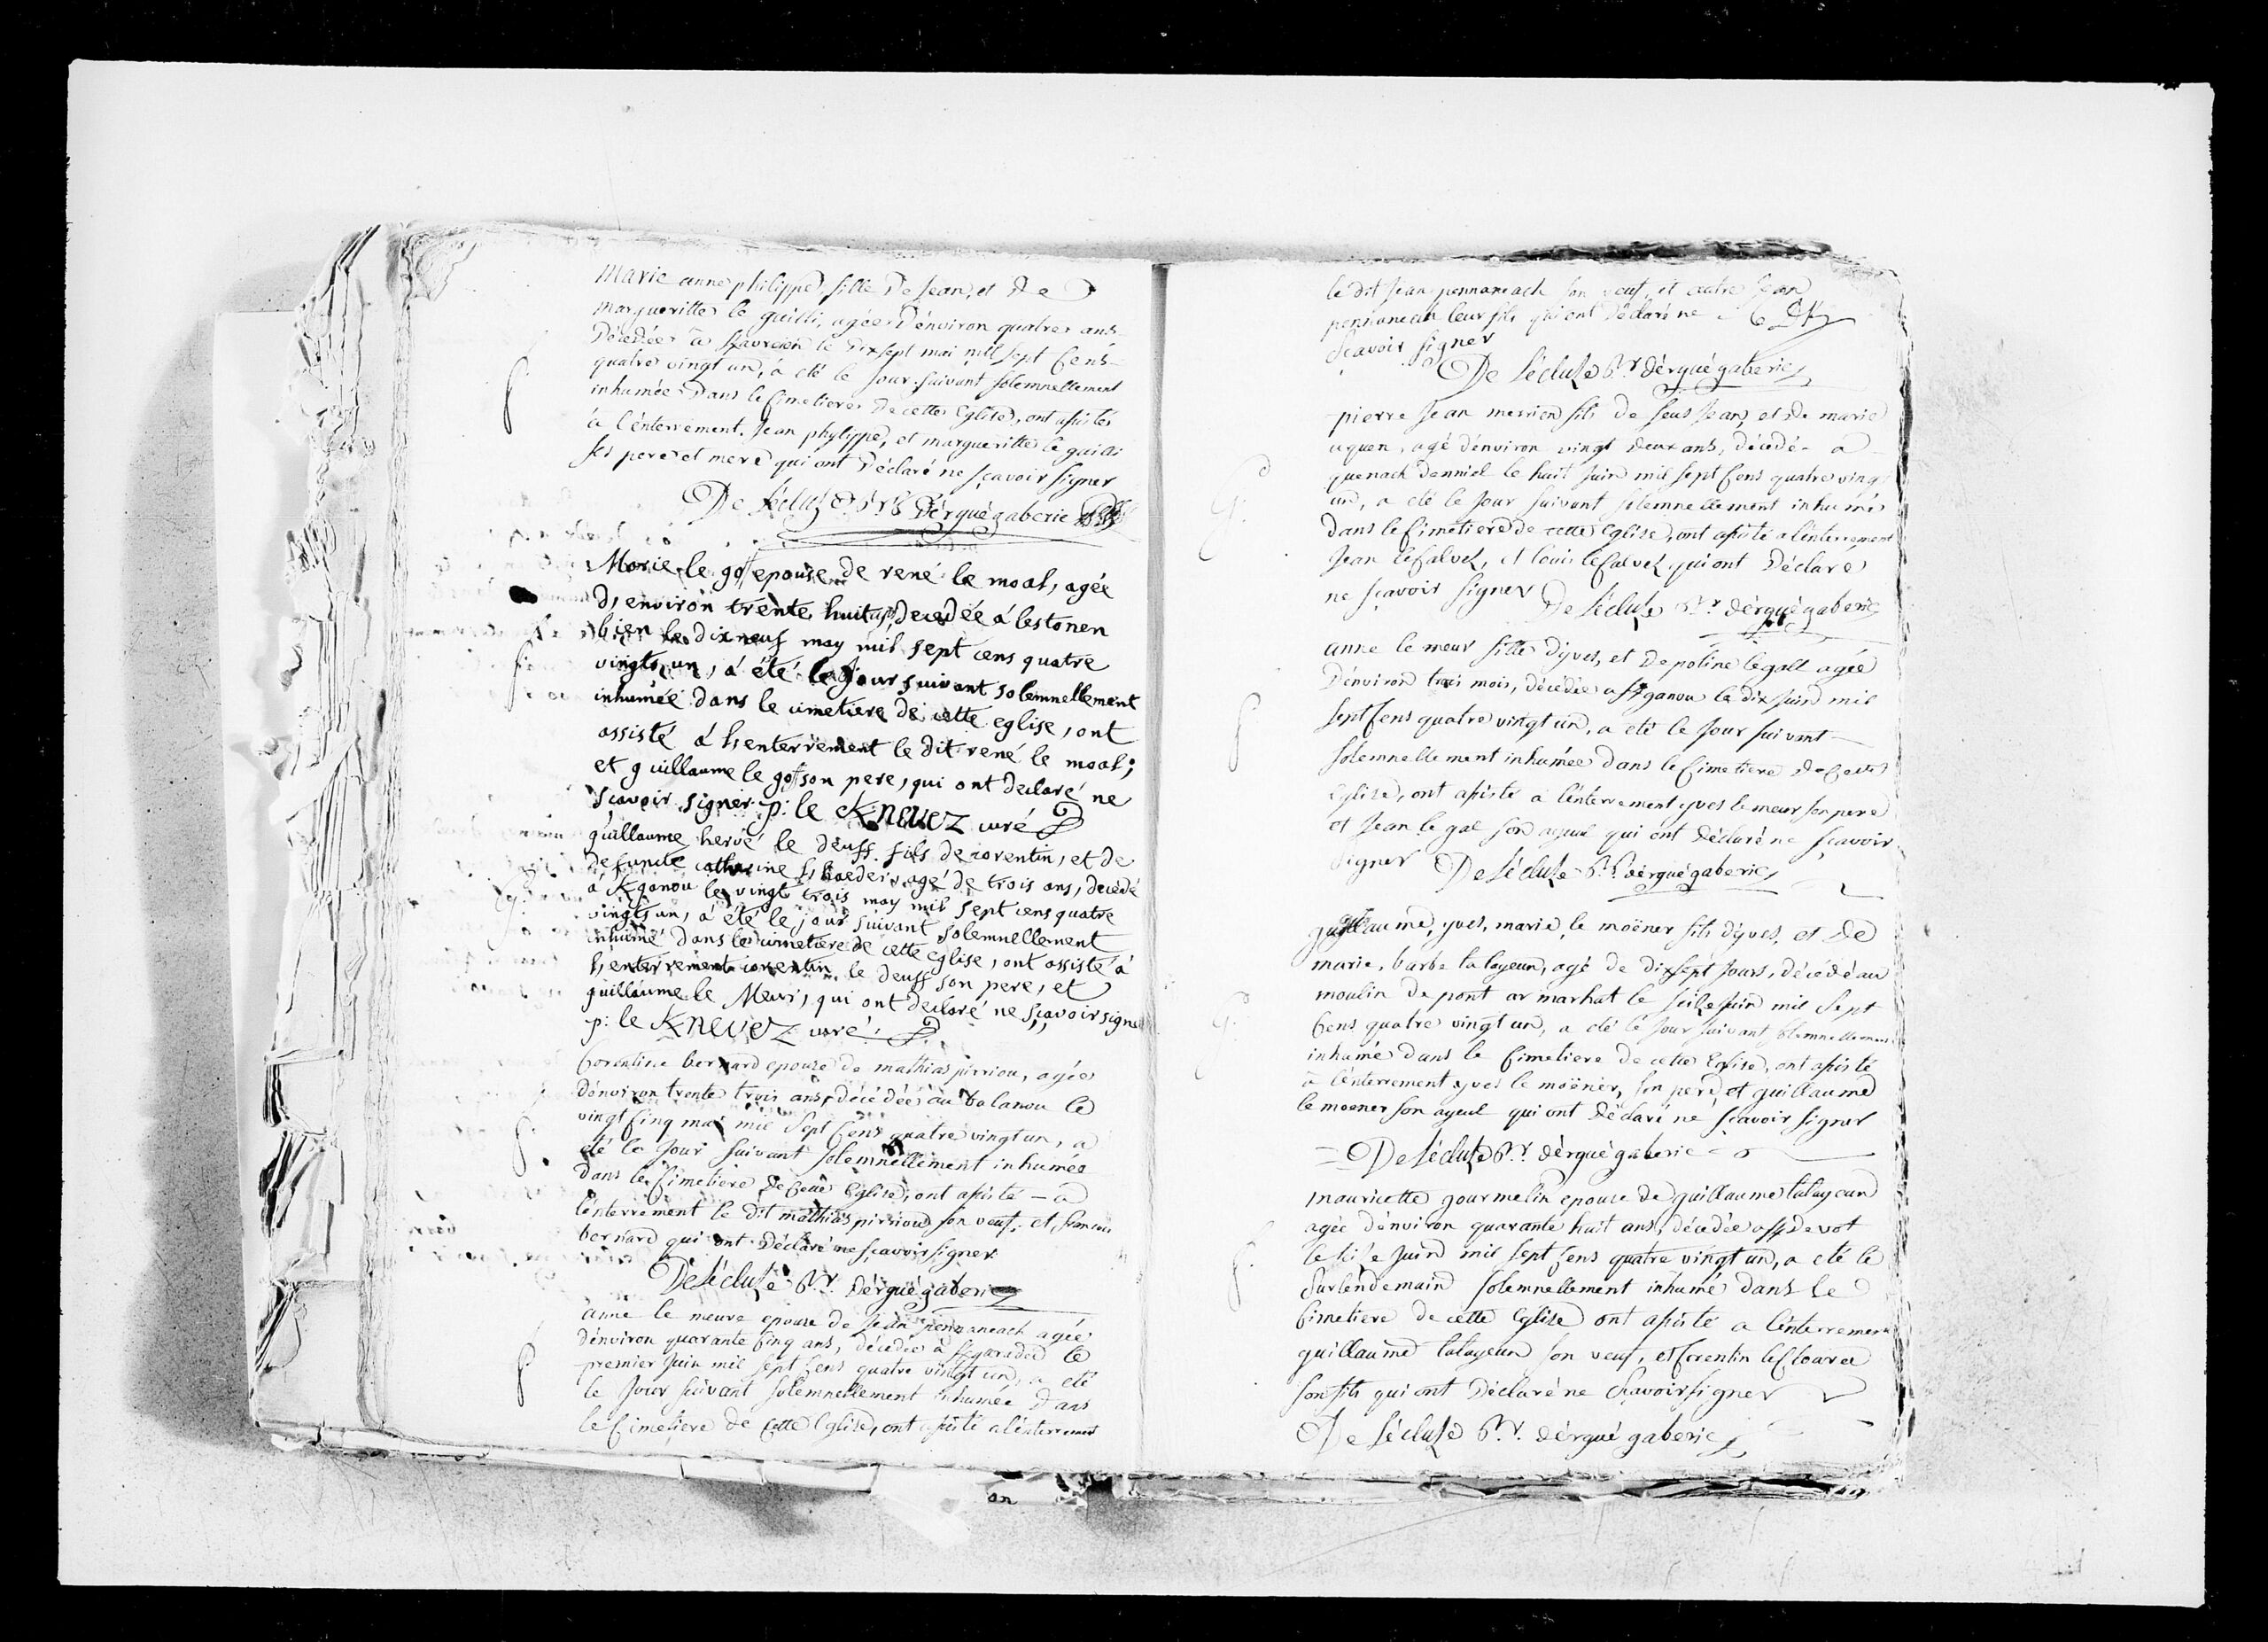 Marie anne philippe, fille De Jean, et De
margueritte le guilli, agée D'énviron quatre ans
Décedée à le dix sept mai mil sept Cens
quatre vingt un, à eté le Jour suivant solemnellement
inhumée Dans le Cimetiere De cette Eglise, ont assistés
à l'énterrement. Jean phylippe, et margueritte le guilli
ses pere et mere qui ont Déclaré ne sçavoir signer
De Lécluze Dérgué gaberic
Marie le goff epouse de rené le moal, agée
d, environ trente huit ans, Decedée á lestonen
bien le dix neuf may mil sept cens quatre
vingts un, á été le jour suivant solemnellement
inhumée dans le cimetiere de cette eglise, ont
assisté á l, enterrement le dit rené le moal;
et guillaume le goff son pere, qui ont declaré ne
sçavoir signer. p: le Knevez curé
guillaume hervé le deuff fils de corentin, et de
defuncte catherine agé de trois ans, decédé
á Kganou le vingt trois may mil sept cens quatre
vingts un, á été le jour suivant solemnellement
inhumé dans le cimetiere de cette eglise, ont assisté á
l, enterrement corentin le deuff son pere, et
guillaume le Meur, qui ont declaré ne sçavoir signer
p: le Knevez curé.
Corentine bernard epouse de mathias pirriou, agée
D'énviron trente trois ans, décédée au balanou le
vingt Cinq mai mil Sept Cens quatre vingt un, a
eté le Jour suivant solemnellement inhumée
Dans le Cimetiere De Cette Eglise, ont assisté – a
l'énterrement le Dit mathias pirriou son veuf, et francois
bernard qui ont Déclaré ne sçavoir signer
De Lécluze Pr. Dérgué gaberic
anne le meure epouse de Jean pennaneach agée
D'énviron quarante Cinq ans, décédée à le
premier Juin mil sept Cens quatre vingt un, a eté
le Jour suivant solemnellement inhumée Dans
le Cimetiere de Cette Eglise, ont assisté a l'énterrement
le dit Jean pennaneach son veuf, et autre Jean
pennaneach leur fils qui ont Déclaré ne
sçavoir signer
De Lécluze Pr. Dérgué gaberic
pierre Jean merrien fils de feus Jean, et De marie
uguen, agé D'énviron vingt deux ans, décedé – a
quenach Denniel le huit Juin mil sept Cens quatre vingt
un, a eté le Jour suivant solemnellement inhumé
Dans le Cimetiere de cette Eglise, ont assisté a l'énterrement
Jean le Calvez, et louis le Calvez qui ont Déclaré
ne sçavoir signer De Lécluze Pr. Dérgué gaberic
anne le meur fille D'yves, et De poline le gall agée
D'énviron trois mois, décédée a Kganou le dix Juin mil
sept Cens quatre vingt un, a eté le Jour suivant
solemnellement inhumée Dans le Cimetiere De Cette
Eglise, ont assisté a l'énterrement yves le meur son pere
et Jean le gal son ayeul qui ont Déclaré ne sçavoir
signer De Lécluze Pr. Dérgué gaberic
guillaume, yves, marie, le moëner fils D'yves, et De
marie, barbe talayeun, agé de Dix sept Jours, décédé au
moulin De pont ar marhat le seize Juin mil sept
Cens quatre vingt un, a eté le Jour suivant solemnellement
inhumé Dans le Cimetiere de cette Eglise, ont assisté
à l'énterrement yves le moënér, son pere, et guillaume
le moener son ayeul qui ont Déclaré ne sçavoir signer
De Lécluze Pr. Dérgué gaberic
mauricette gourmelin epouse De guillaume talayeun
agée D'énviron quarante huit ans, décédée a Kdevot
le seize Juin mil sept Cens quatre vingt un, a eté le
Surlendemain solemnellement inhumé Dans le
Cimetiere De cette Eglise ont assisté a l'énterrement
guillaume talayeun son veuf, et Corentin
son fils qui ont Déclaré ne sçavoir signer
De Lécluze Pr. Dérgué gaberic